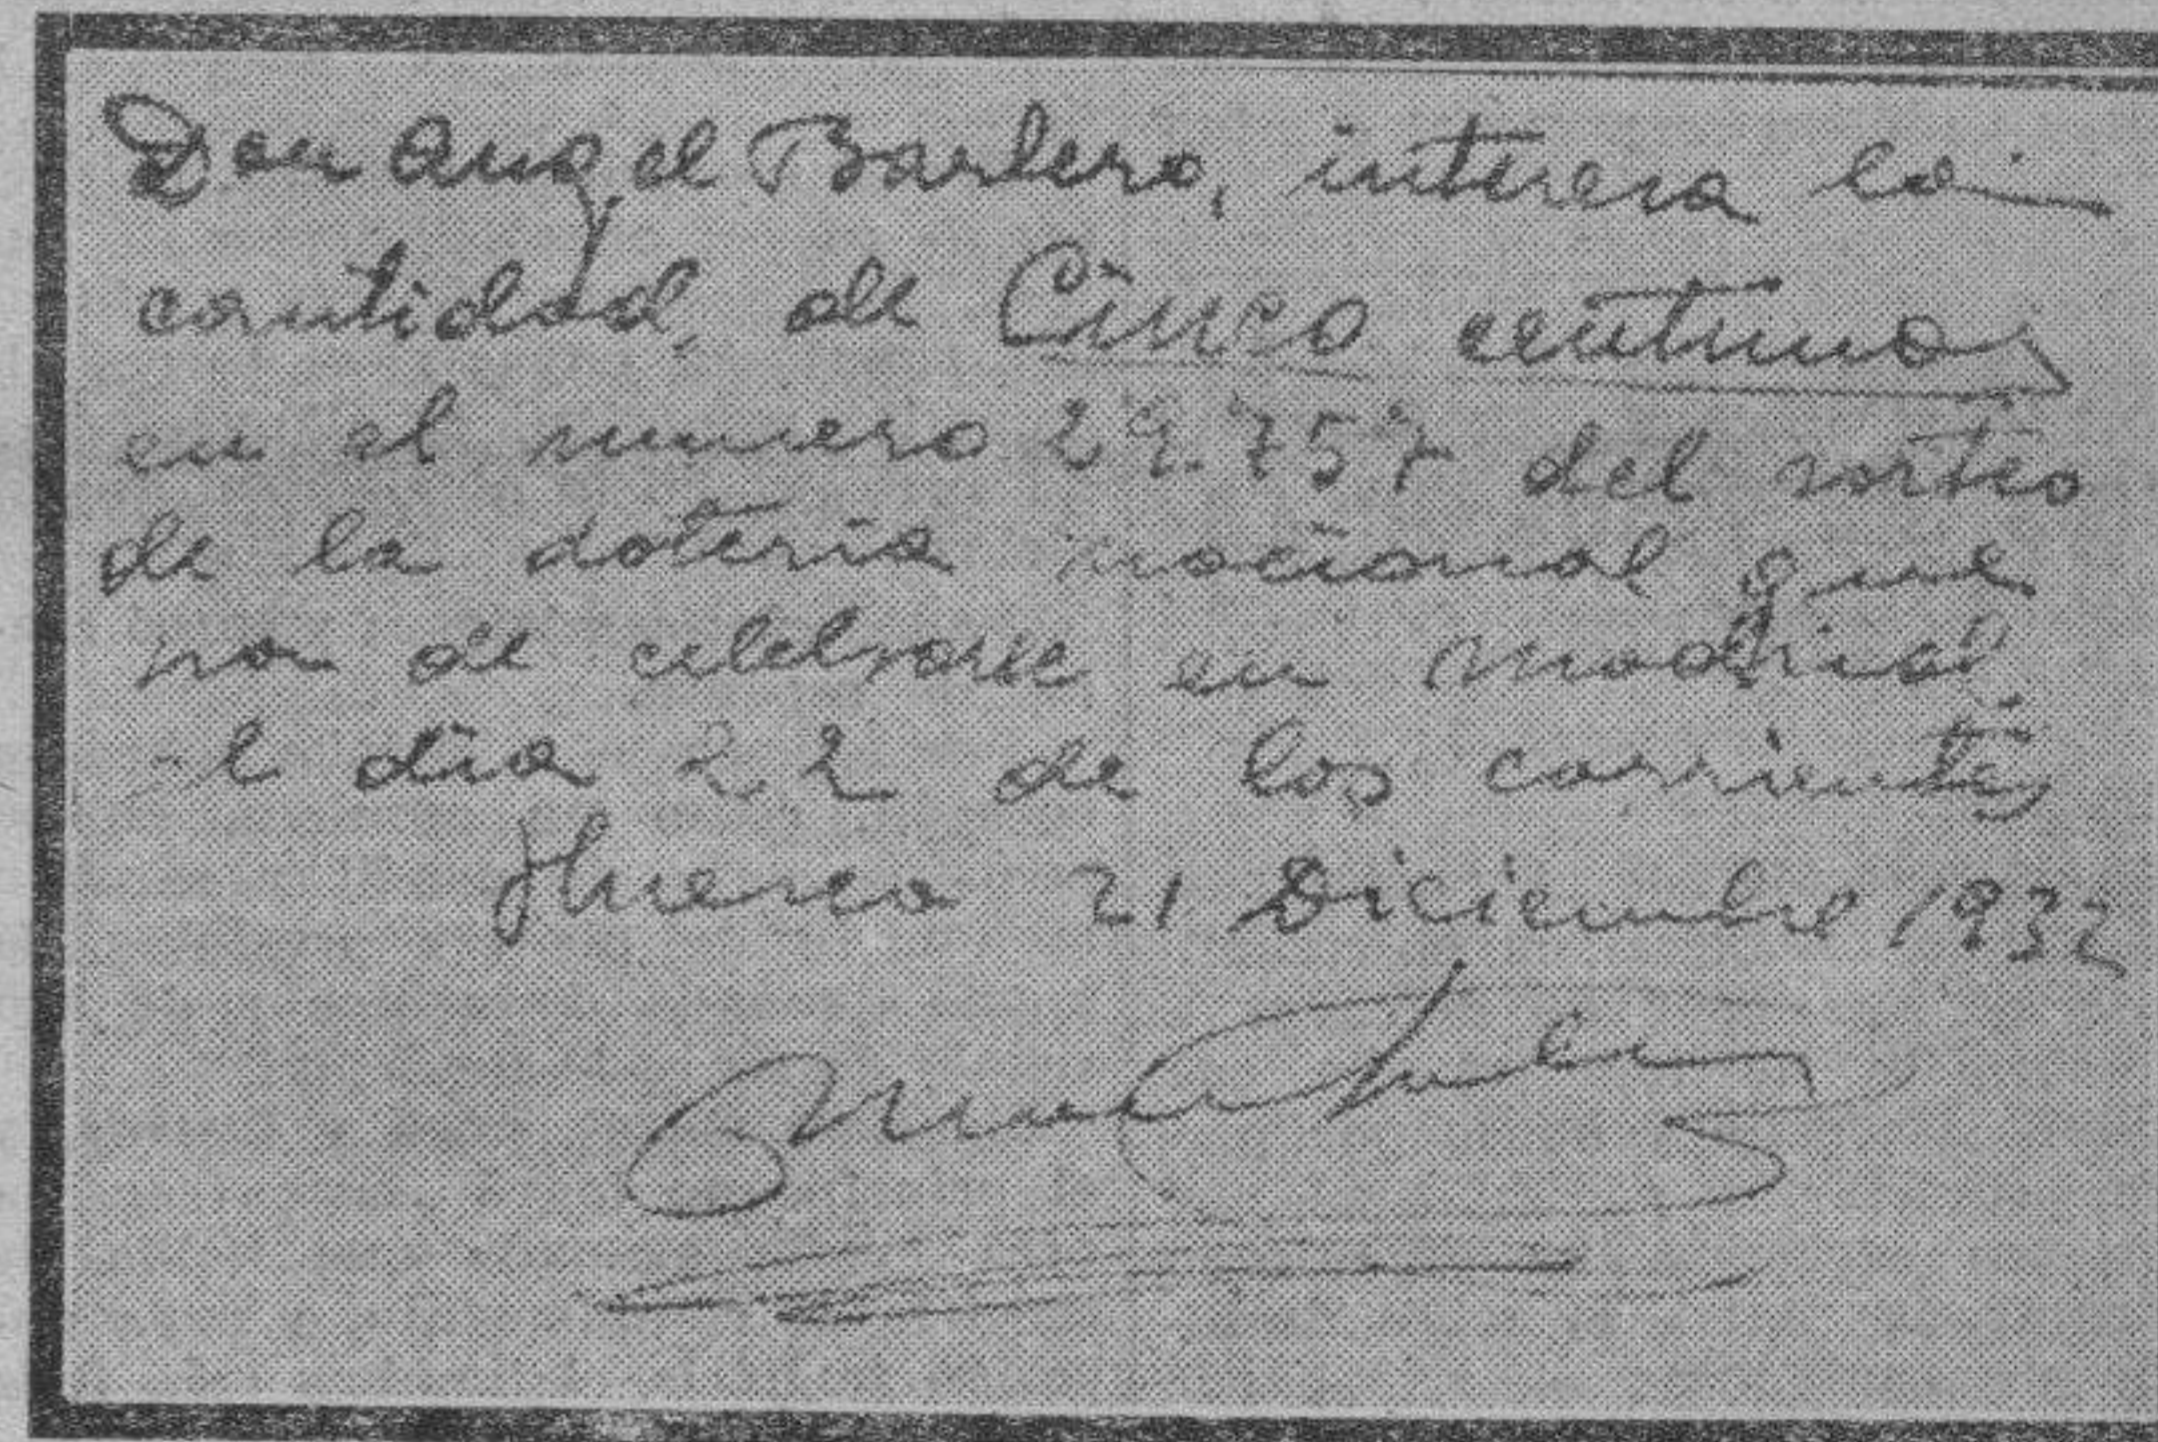 Don Angel Barbero, interesa la
cantidad, de Cinco centimos
en el numero 29.757 del sorteo
de la Loteria nacional que
ha de celebrarse en Madrid,
el dia 22 de los corrientes
Huesca 21 Diciembre 1932